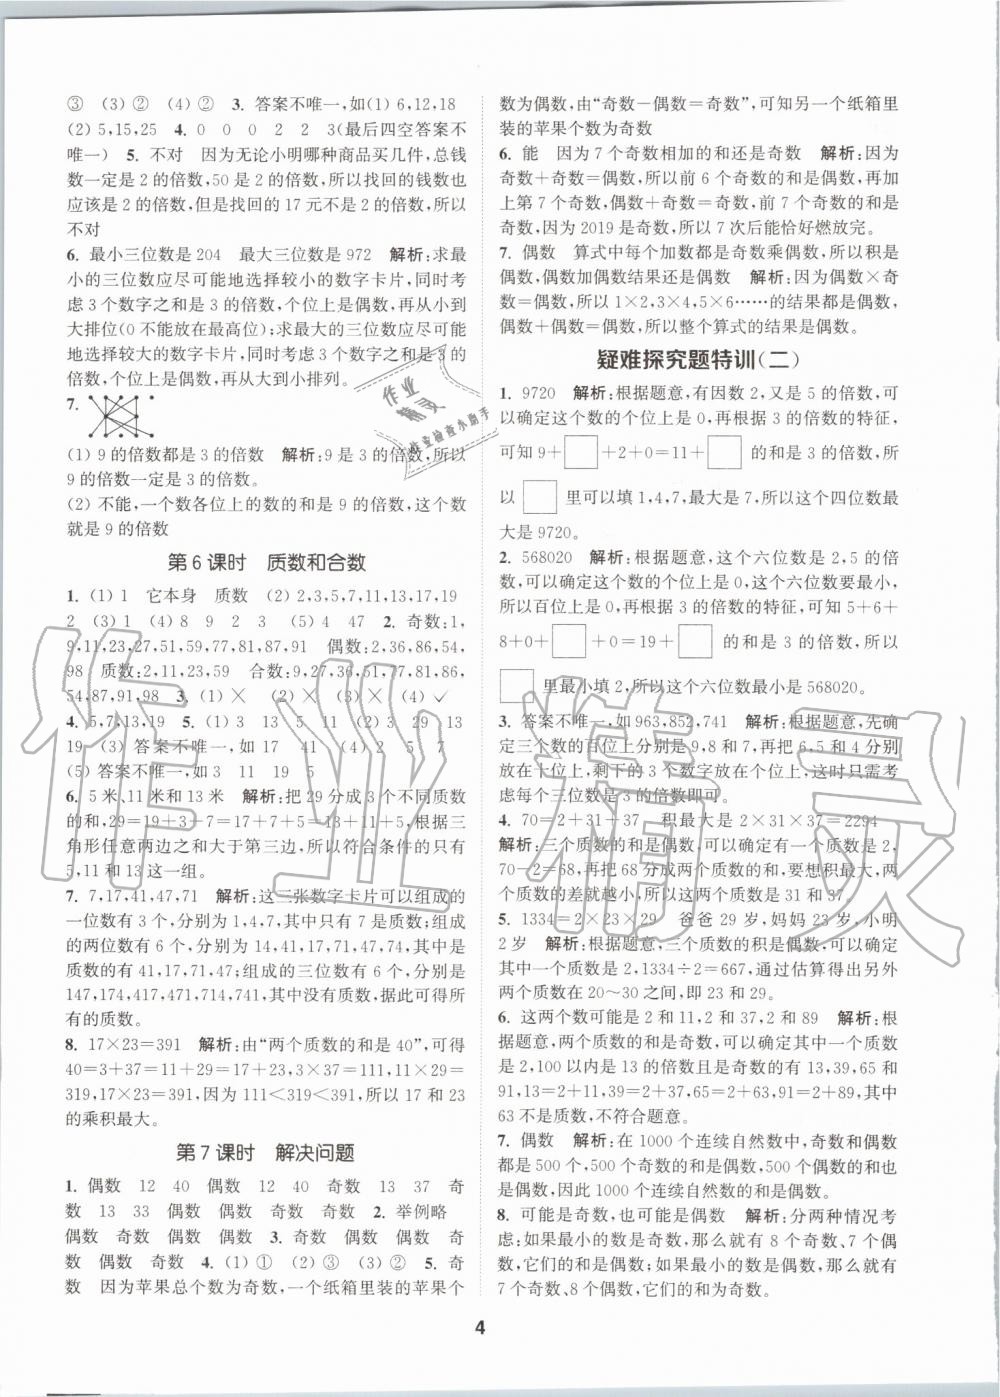 ③ (3) ② (4) ② 3. 答案不唯一,如(1) 6,12,18
(2) 5,15,25 4. 0 0 0 2 2 3(最后四空答案不
唯一) 5. 不对 因为无论小明哪种商品买几件,总钱
数一定是2的倍数,50是2的倍数,所以找回的钱数也
应该是2的倍数,但是找回的17元不是2的倍数,所以
不对
6. 最小三位数是204 最大三位数是972 解析:求最
小的三位数应尽可能地选择较小的数字卡片,同时考
虑3个数字之和是3的倍数,个位上是偶数,再从小到
大排位(0不能放在最高位);求最大的三位数应尽可能
地选择较大的数字卡片,同时考虑3个数字之和是3的
倍数,个位上是偶数,再从大到小排列。
7.
(1) 9的倍数都是3的倍数 解析:9是3的倍数,所以
9的倍数一定是3的倍数。
(2) 不能,一个数各位上的数的和是9的倍数,这个数
就是9的倍数
第6课时 质数和合数
1. (1) 1 它本身 质数 (2) 2,3,5,7,11,13,17,19
2 (3) 1 (4) 8 9 2 3 (5) 4 47 2. 奇数:1,
9,11,23,27,51,59,77,81,87,91 偶数:2,36,86,54,
98 质数:2,11,23,59 合数:9,27,36,51,77,81,86,
54,87,91,98 3. (1) × (2) × (3) × (4) ✓
4. 5,7,13,19 5. (1) 3 13 5 11 (2) 3 29 13
19 (3) 答案不唯一,如17 41 (4) 2 5 7
(5) 答案不唯一,如3 11 19 5
6. 5米、11米和13米 解析:把29分成3个不同质数
的和,29=19+3+7=17+7+5=13+11+5,根据三
角形任意两边之和大于第三边,所以符合条件的只有
5,11和13这一组。
7. 7,17,41,47,71 解析:这三张数字卡片可以组成的
一位数有3个,分别为1,4,7,其中7是质数;组成
的两位数有6个,分别为14,41,17,71,47,74,其中是
质数的有41,17,71,47;组成的三位数有6个,分别是
147,174,417,471,714,741,其中没有质数,据此可得所
有的质数。
8. 17×23=391 解析:由“两个质数的和是40”,可得
40=3+37=11+29=17+23,3×37=111,11×29=
319,17×23=391,因为111<319<391,所以17和23
的乘积最大。
第7课时 解决问题
1. 偶数 12 40 偶数 12 40 奇数 13 37 奇
数 13 33 偶数 偶数 奇数 奇数 2. 举例略
偶数 奇数 偶数 偶数 3. 奇数 偶数 偶数 奇
数 偶数 奇数 4. (1) ① (2) ③ (3) ② 5. 奇
数 因为苹果总个数为奇数,一个纸箱里装的苹果个
数为偶数,由“奇数-偶数=奇数”,可知另一个纸箱里
装的苹果个数为奇数
6. 能 因为7个奇数相加的和还是奇数 解析:因为
奇数+奇数=偶数,所以前6个奇数的和是偶数,再加
上第7个奇数,偶数+奇数=奇数,前7个奇数的和是
奇数,因为2019是奇数,所以7次后能恰好燃放完。
7. 偶数 算式中每个加数都是奇数乘偶数,所以积是
偶数,偶数加偶数结果还是偶数 解析:因为偶数×奇
数=偶数,所以1×2,3×4,5×6……的结果都是偶数,
偶数+偶数=偶数,所以整个算式的结果是偶数。
疑难探究题特训(二)
1. 9720 解析:根据题意,有因数2,又是5的倍数,可
以确定这个数的个位上是0,再根据3的倍数的特征,
可知9+□+2+0=11+□的和是3的倍数,所
以□里可以填1,4,7,最大是7,所以这个四位数最
大是9720。
2. 568020 解析:根据题意,这个六位数是2,5的倍
数,可以确定这个数的个位上是0,这个六位数要最小,
所以百位上是0,根据3的倍数的特征,可知5+6+
8+0+□+0=19+□的和是3的倍数,所以
□里最小填2,所以这个六位数最小是568020。
3. 答案不唯一,如963,852,741 解析:根据题意,先确
定三个数的百位上分别是9,8和7,再把6,5和4分别
放在十位上,剩下的3个数字放在个位上,这时只需考
虑每个三位数是3的倍数即可。
4. 70=2+31+37 积最大是2×31×37=2294
解析:三个质数的和是偶数,可以确定其中一个数是2,
70-2=68,再把68分成两个质数的和,要想积最大,两
个质数的差就越小,所以这两个质数是31和37。
5. 1334=2×23×29 爸爸29岁,妈妈23岁,小明
2岁 解析:根据题意,三个质数的积是偶数,可以确定
其中一个质数是2,1334÷2=667,通过估算得出另外
两个质数在20~30之间,即23和29。
6. 这两个数可能是2和11,2和37,2和89 解析:根
据题意,两个质数的和是奇数,可以确定其中一个质数
是2,100以内是13的倍数且是奇数的有13,39,65和
91,13=2+11,39=2+37,65=2+63,91=2+89,其中
63不是质数,不符合题意。
7. 偶数 解析:在1000个连续自然数中,奇数和偶数
都是500个,500个奇数的和是偶数,500个偶数的和也
是偶数,因此1000个连续自然数的和是偶数。
8. 可能是奇数,也可能是偶数 解析:分两种情况考
虑:如果最小的数是奇数,那么就有8个奇数、7个偶
数,它们的和是偶数;如果最小的数是偶数,那么就有
7个奇数、8个偶数,它们的和为奇数。
4
作业
精灵
作业检查小助手
作业精灵